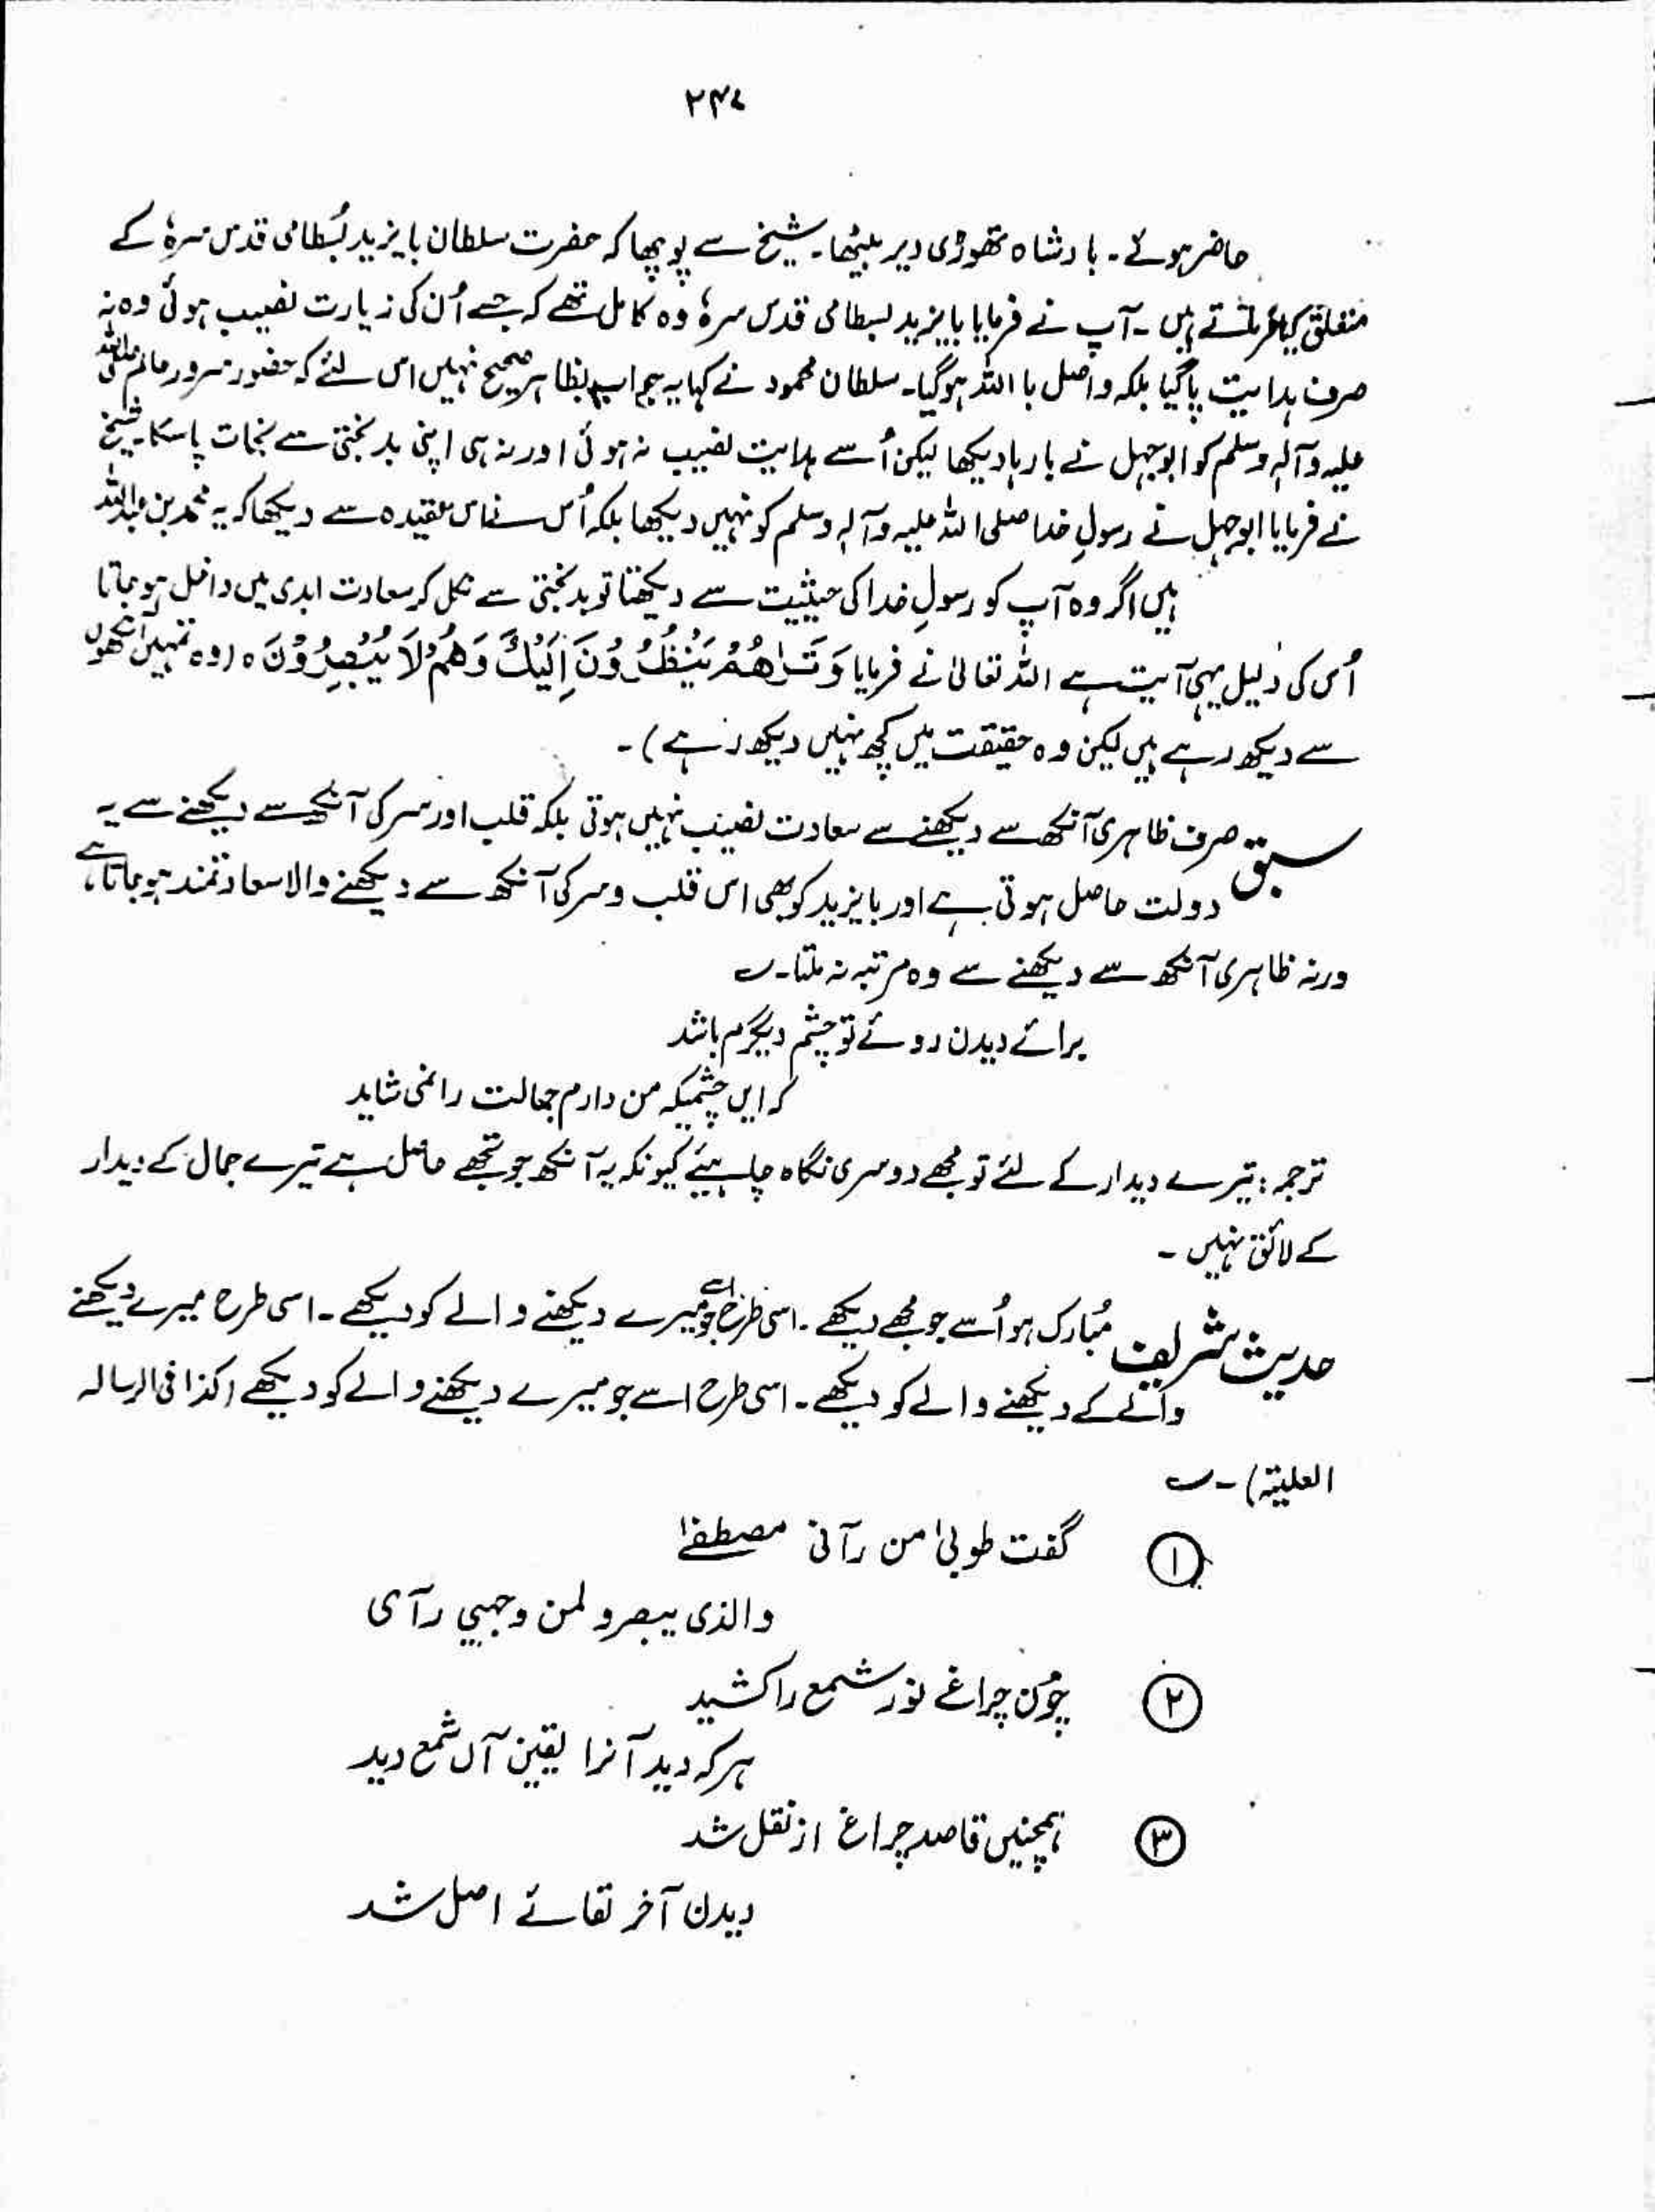 ۲۴۷
حاضر ہوئے۔ بادشاہ تھوڑی دیر بیٹھا۔ شیخ سے پوچھا کہ حضرت سلطان بایزید بُسطامی قدس سرہٗ کے
متعلق کیا فرماتے ہیں۔ آپ نے فرمایا بایزید بسطامی قدس سرہٗ وہ کامل تھے کہ جسے اُن کی زیارت نصیب ہوئی وہ نہ
صرف ہدایت پاگیا بلکہ واصل با اللہ ہوگیا۔ سلطان محمود نے کہا یہ جواب بظاہر صحیح نہیں اس لئے کہ حضور سرور عالم صلی اللہ
علیہ وآلہٖ وسلم کو ابوجہل نے بارہا دیکھا لیکن اُسے ہدایت نصیب نہ ہوئی اور نہ ہی اپنی بدبختی سے نجات پاسکا۔ شیخ
نے فرمایا ابوجہل نے رسولِ خدا صلی اللہ علیہ وآلہٖ وسلم کو نہیں دیکھا بلکہ اُس نے اس عقیدہ سے دیکھا کہ یہ محمد بن عبداللہ
ہیں اگر وہ آپ کو رسولِ خدا کی حیثیت سے دیکھتا تو بدبختی سے نکل کر سعادت ابدی میں داخل ہو جاتا
اُس کی دلیل یہی آیت ہے اللہ تعالیٰ نے فرمایا وَتَرٰاهُمْ يَنْظُرُوْنَ اِلَيْكَ وَهُمْ لَا يُبْصِرُوْنَ ه (وہ تمہیں آنکھوں
سے دیکھ رہے ہیں لیکن وہ حقیقت میں کچھ نہیں دیکھ رہے)۔
سبق صرف ظاہری آنکھ سے دیکھنے سے سعادت نصیب نہیں ہوتی بلکہ قلب اور سر کی آنکھ سے دیکھنے سے یہ
دولت حاصل ہوتی ہے اور بایزید کو بھی اس قلب و سر کی آنکھ سے دیکھنے والا سعادتمند ہو جاتا ہے
ورنہ ظاہری آنکھ سے دیکھنے سے وہ مرتبہ نہ ملتا۔ ؎
برائے دیدن روئے تو چشم دیگرم باشد
کہ ایں چشمیکہ من دارم جمالت را نمی شاید
ترجمہ: تیرے دیدار کے لئے تو مجھے دوسری نگاہ چاہیئے کیونکہ یہ آنکھ جو تجھے حاصل ہے تیرے جمال کے دیدار
کے لائق نہیں۔
حدیث شریف مُبارک ہو اُسے جو مجھے دیکھے۔ اسی طرح اسے جو میرے دیکھنے والے کو دیکھے۔ اسی طرح میرے دیکھنے
والے کے دیکھنے والے کو دیکھے۔ اسی طرح اسے جو میرے دیکھنے والے کو دیکھے (کذا فی الرسالہ
العلیۃ)۔ ؎
۱ گفت طوبیٰ من رآنی مصطفےٰ
والذی یبصرو لمن وجہی رآی
۲ چوُں چراغے نور شمع را کشید
ہر کہ دید آنرا یقین آں شمع دید
۳ ہمچنیں تا صد چراغ از نقل شد
دیدن آخر لقائے اصل شد